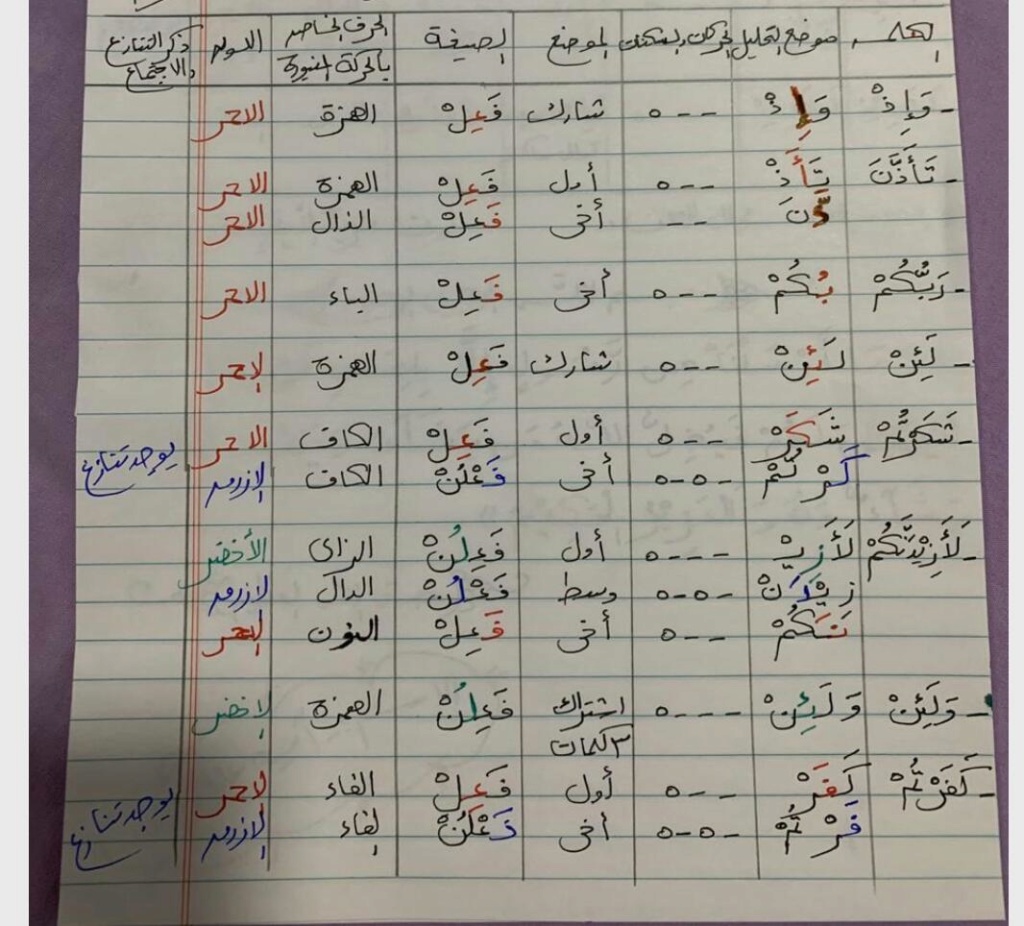 موضع التحليل الحركات والسكنات الموضع الصيغة الحرف الخاص بالحركة اللون ذكر التنازع والاجتماع
- وَإِذْ وَإِذْ - - - ه شارك فَعِلْ الهمزة الاحمر
- تَأَذَّنَ تَأَذْ - - ه أول فَعِلْ الهمزة الاحمر
ذَّنَ - - أخى فَعِلْ الذال الاحمر
- رَبُّكُمْ بُكُمْ - - ه أخى فَعِلْ الباء الاحمر
- لَئِنْ لَئِنْ - - ه شارك فَعِلْ الهمزة لاحمر
- شَكَرْتُمْ شَكَرْ - - ه أول فَعِلْ الكاف الاحمر يوجد تنازع
كَرْتُمْ - ه - ه أخى فَعْلُنْ الكاف الازرق
- لَأَزِيدَنَّكُمْ لَأَزِيْ - - - ه أول فَعِلُنْ الزاى الأخضر
زِيْدَنْ - ه - ه وسط فَعْلُنْ الدال لازرق
نَنَكُمْ - - ه أخى فَعِلْ النون لاحمر
- وَلَئِنْ وَلَئِنْ - - - ه اشتراك ٣ كلمات فَعِلُنْ الهمزة لاخضر
- كَفَرْتُمْ كَفَرْ - - ه أول فَعِلْ الفاء لاحمر يوجد تنازع
فَرْتُمْ - ه - ه أخى فَعْلُنْ لفاء لازرق